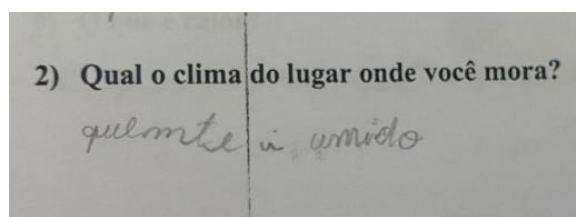 2) Qual o clima do lugar onde você mora?
quemte i umido